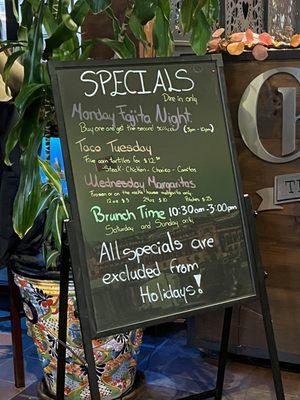 SPECIALS
Dine in only
Monday Fajita Night
Buy one and get the second 50% off (5pm - 10pm)
Taco Tuesday
Five corn tortillas for $12.
Steak - Chicken - Chorizo - Carnitas
Wednesday Margaritas
Frozen or on the rocks, house
12oz $5 24oz $10 Pitchers $25
Brunch Time 10:30am-3:00pm
Saturday and Sunday only
All specials are
excluded from
Holidays!
C
T